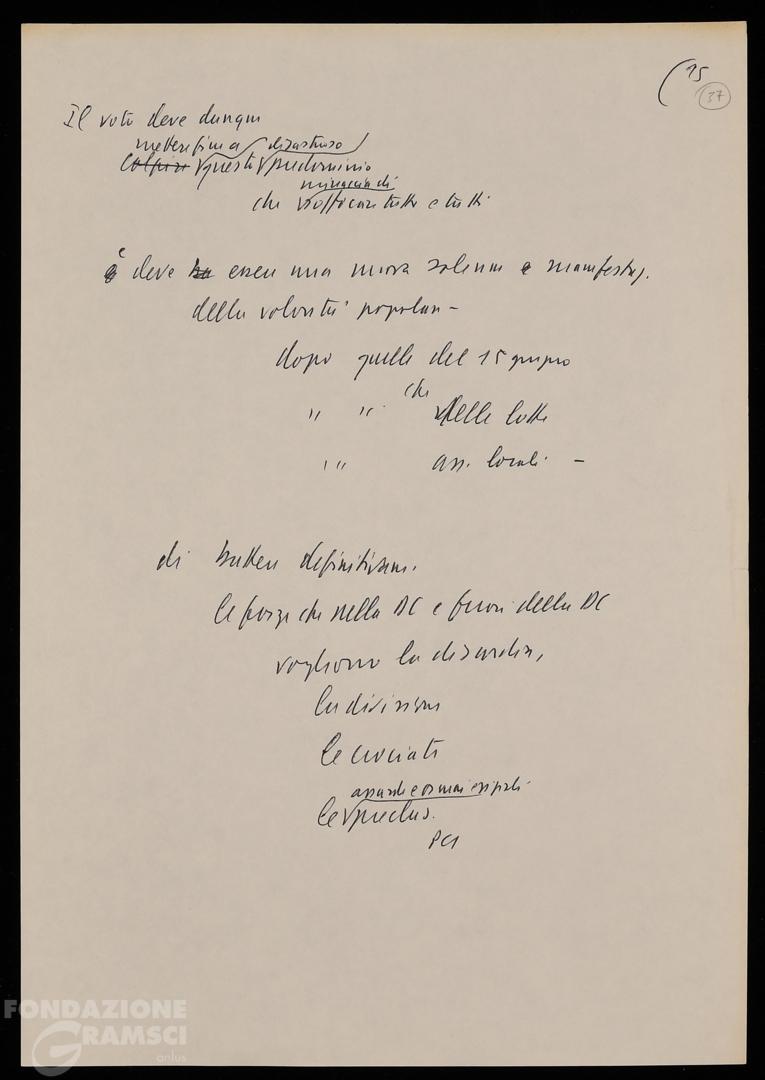 (15
37
Il voto deve dunque
mettere fine a disastroso
colpire questo predominio
minaccia di
che soffocare tutto e tutti
e deve essere una nuova solenne manifestaz.
della volontà popolare –
dopo quelle del 15 giugno
" " che delle lotte
" " ass. locali –
di battere definitivam.
le forze che nella DC e fuori della DC
vogliono la discordia,
la divisione
le crociate
assurde e ormai
le preclus.
PCI
FONDAZIONE
GRAMSCI
onlus